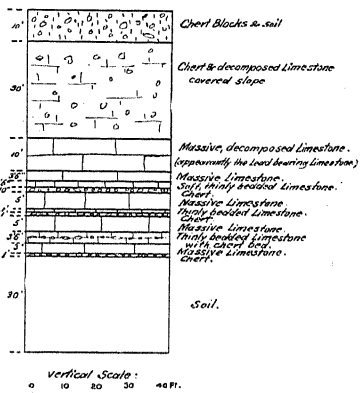 10' Chert Blocks & soil
30' Chert & decomposed Limestone
covered slope
10' Massive, decomposed Limestone.
(apparently the Lead bearing Limestone)
Massive Limestone.
Soft, thinly bedded Limestone.
Chert.
5' Massive Limestone.
1' Thinly bedded Limestone.
Chert
5' Massive Limestone.
Thinly bedded Limestone
with chert bed.
5' Massive Limestone.
1' Chert.
30' Soil.
Vertical Scale:
0 10 20 30 40 Ft.